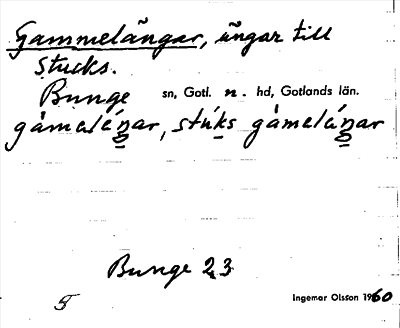 Gammelängar, ängar till
Stucks.
Bunge sn, Gotl. n. hd, Gotlands län.
gàmeláŋar, stúks gàmeláŋar
Bunge 23
Ingemar Olsson 1960